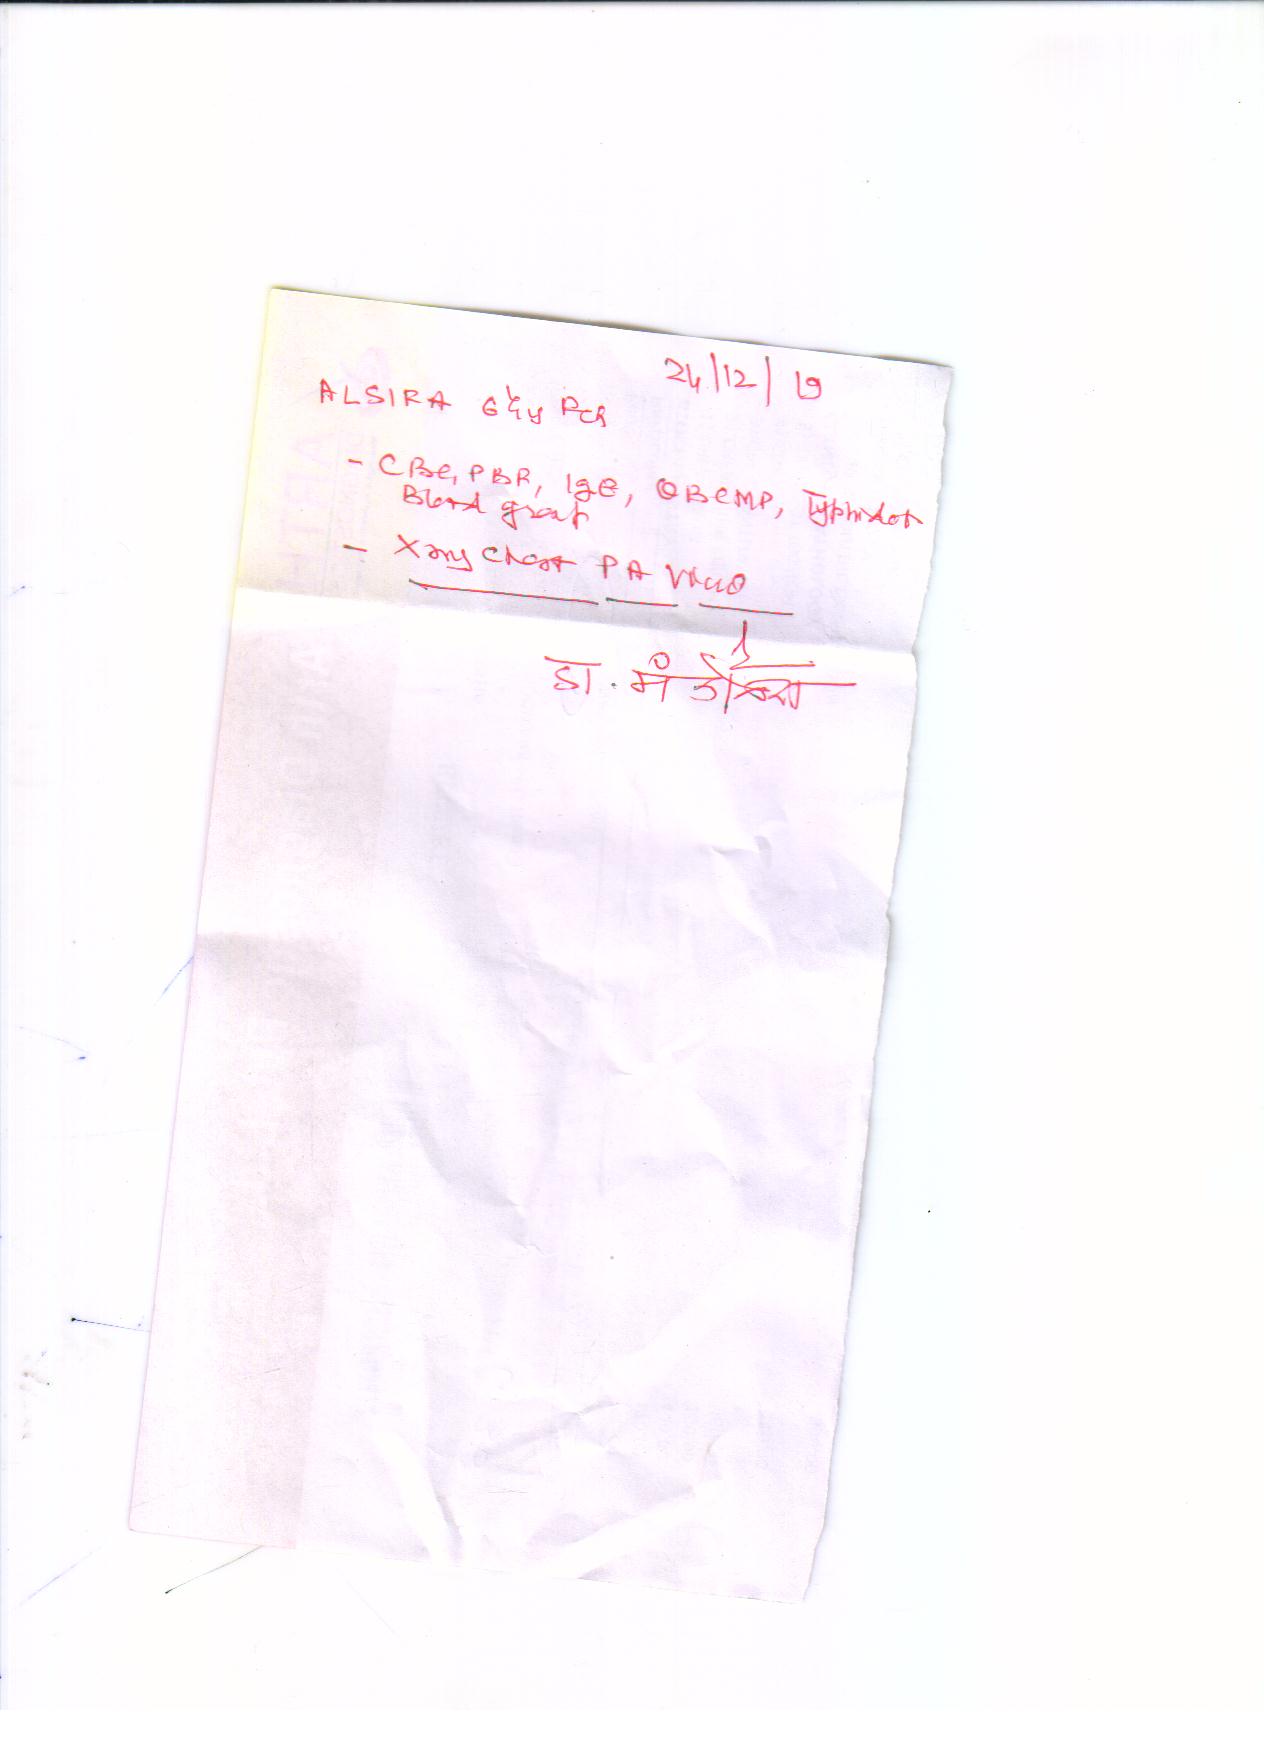 24/12/19
ALSIRA 6½y
- CBC, PBR, IgE, QBCMP, Typhidot
Blood group
- Xray Chest PA View
डा. मं